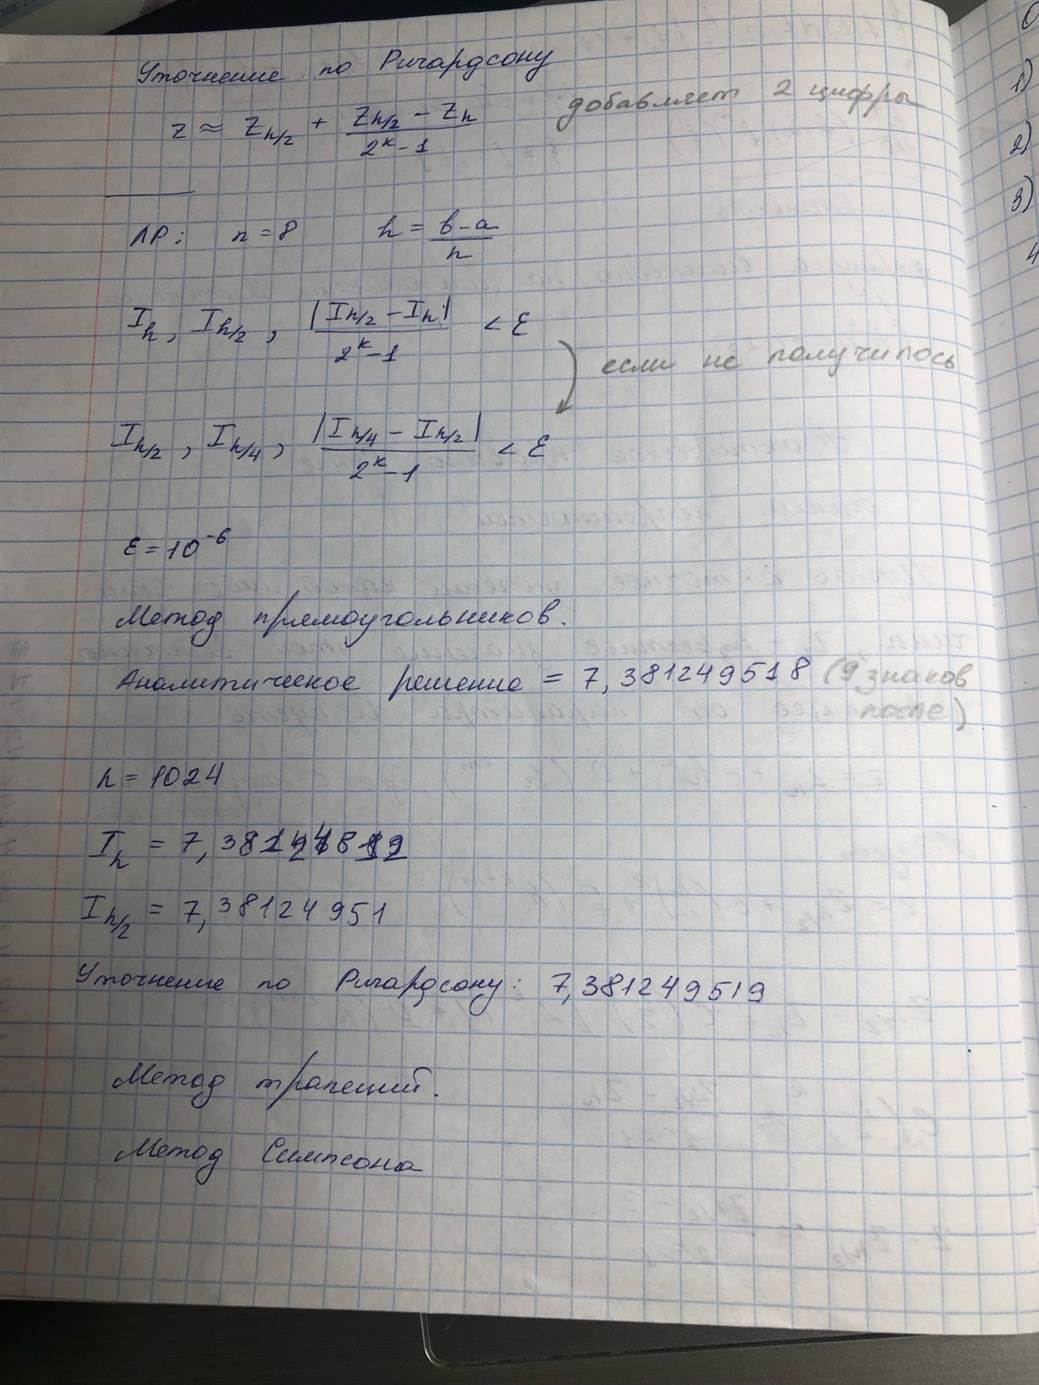 Уточнение по Ричардсону
z ≈ z_{h/2} + \frac{z_{h/2} - z_h}{2^k - 1} добавляет 2 цифры
ЛР: n = 8 h = \frac{b-a}{n}
I_h, I_{h/2}, \frac{|I_{h/2} - I_h|}{2^k - 1} < ε
если не получилось
I_{h/2}, I_{h/4}, \frac{|I_{h/4} - I_{h/2}|}{2^k - 1} < ε
ε = 10^{-6}
Метод прямоугольников.
Аналитическое решение = 7,381249518 (9 знаков
после)
n = 1024
I_h = 7,381
I_{h/2} = 7,38124951
Уточнение по Ричардсону: 7,381249519
Метод трапеций.
Метод Симпсона
0
1)
2)
3)
4